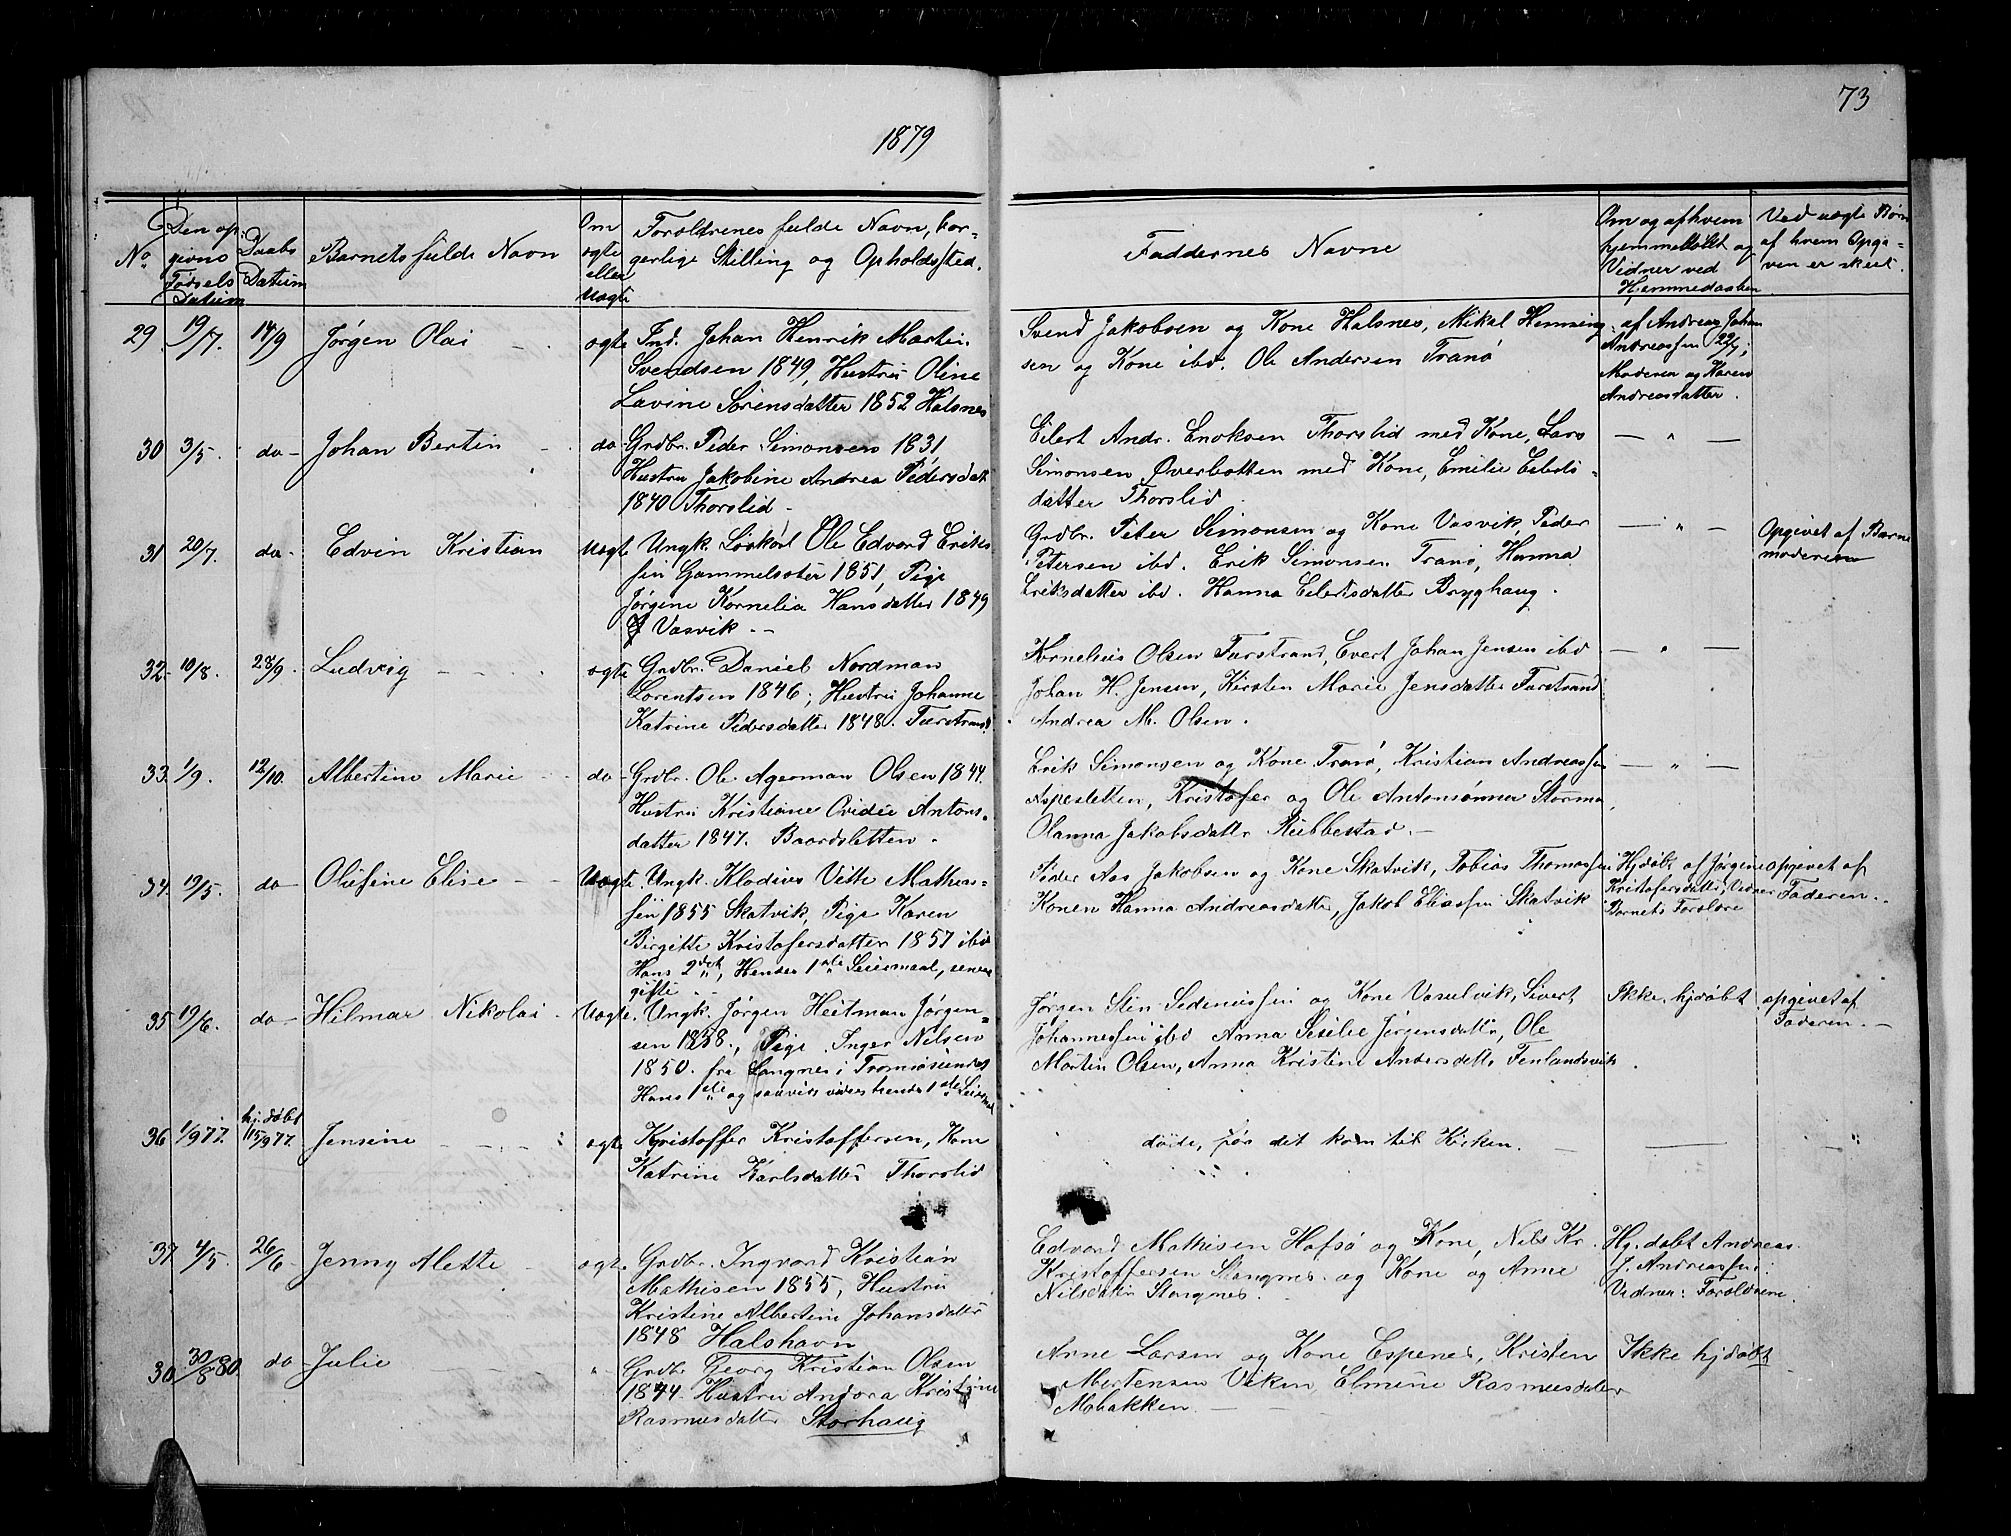 73
1879
No
Den op-
givne
Fødsels
Datum
Daabs
Datum
Barnets fulde Navn
Om
ægte
eller
uægte
Forældrenes fulde Navn, bor-
gerlige Stilling og Opholdssted.
Faddernes Navne
Om og af hvem
hjemmedøbt og
Vidner ved
Hjemmedaaben
Ved uægte Børn
af hvem Opgi-
ven er skeet.
29. 19/7. 14/9 Jørgen Olai ægte
Ind. Johan Henrik Martin
Svendsen 1849, Hustru Oline
Lavine Sørensdatter 1852 Halsnes
Svend Jakobsen og Kone Halsnes, Mikal Henning-
sen og Kone ibd. Ole Andersen Tranø
af Andreas Johan
Andreassen 22/7;
Moderen og Karen
Andreasdatter.
30 3/5. do- Johan Bertin do
Grdbr. Peder Simonsen 1831
Hustru Jakobine Andrea Pedersdat
1840 Thorslid -
Eilert Andr. Enoksen Thorslid med Kone, Lars
Simonsen Øverbotten med Kone, Emilie Eilerts-
datter Thorslid
— " —
31. 20/7. do- Edvin Kristian uægte
Ungk. Løskarl Ole Edvard Eriks
sen Gammelsæter 1851, Pige
Jørgine Kornelia Hansdatter 1849
Vasvik. --
Grdbr. Peter Simonsen og Kone Vasvik, Peder
Petersen ibd. Erik Simonsen Tranø, Hanna
Eriksdatter ibd. Hanna Eilertsdatter Bryghaug.
— " —
Opgivet af Barne
moderen
32. 10/8. 28/9. Ludvig ægte
Grdbr. Daniel Nordman
Lorentsen 1846; Hustru Johanne
Katrine Pedersdatter 1848. Furstrand.
Kornelius Olsen Furstrand, Evert Johan Jensen ibd
Johan H. Jensen, Kirsten Marie Jensdatter Furstrand
Andrea M. Olsen.
— " —
33. 1/9. 12/10. Albertine Marie do-
Grdbr. Ole Agerman Olsen 1844.
Hustru Kristiane Ovidie Antons-
datter 1847. Baardsletten.
Erik Simonsen og Kone Tranø, Kristian Andreassen
Aspesletten, Kristofer og Ole Antonsønner Storma,
Olanna Jakobsdatter Rubbestad. -
— " —
34. 19/5. do- Olufine Elise uægte
Ungk. Klodius Vitte Mathias-
sen 1855 Skatvik, Pige Karen
Birgitte Kristofersdatter 1857 ibid
Hans 2det, Hendes 1ste Leiermaal, senere
gifte
Peder Aas Jakobsen og Kone Skatvik, Tobias Thomassen
Konen Hanna Andreasdatter, Jakob Eliassen Skatvik
Hjdøbt af Jørgine
Kristofersdatter, Vidner
Barnets Forældre
opgivet af
Faderen.
35 19/6. do- Hilmar Nikolai uægte.
Ungk. Jørgen Heitman Jørgen-
sen 1858., Pige Inger Nilsen
1850. fra Langnes i Tromsøsundet
Hans 1ste og saavidt vides hendes 1ste Leierm
Jørgen Stin Sedeniussen og Kone Vasselvik, Sivert
Johannessen ibd Anna Sesilie Jørgensdatter, Ole
Martin Olsen, Anna Kristine Andersdatter Fenlandsvik.
Ikke hjdøbt
opgivet af
Faderen. -
36 1/9 77. hj.døbt 15/9 77. Jensine ægte
Kristoffer Kristoffersen, Kone
Katrine Karlsdatter Thorslid
døde, før det kom til Kirken. -
37 4/5. 26/6 Jenny Alette ægte
Grdbr. Ingvard Kristian
Mathisen 1855, Hustru
Kristine Albertine Johansdatter
1848 Halshavn
Edvard Mathisen Hofsø og Kone, Nils Kr.
Kristoffersen Stangnes og Kone og Anne
Nilsdatter Stangnes.
Hj.døbt Andreas
J. Andreassen:
Vidner: Forældrene.
30. 30/8 80. do Julie "
Grdbr Georg Kristian Olsen
1844. Hustru Andora Kristine
Rasmusdatter Storhaug
Arne Larsen og Kone Espenes, Kristen
Mortensen Viken, Elmine Rasmusdatter
Mobakken.
Ikke hjdøbt